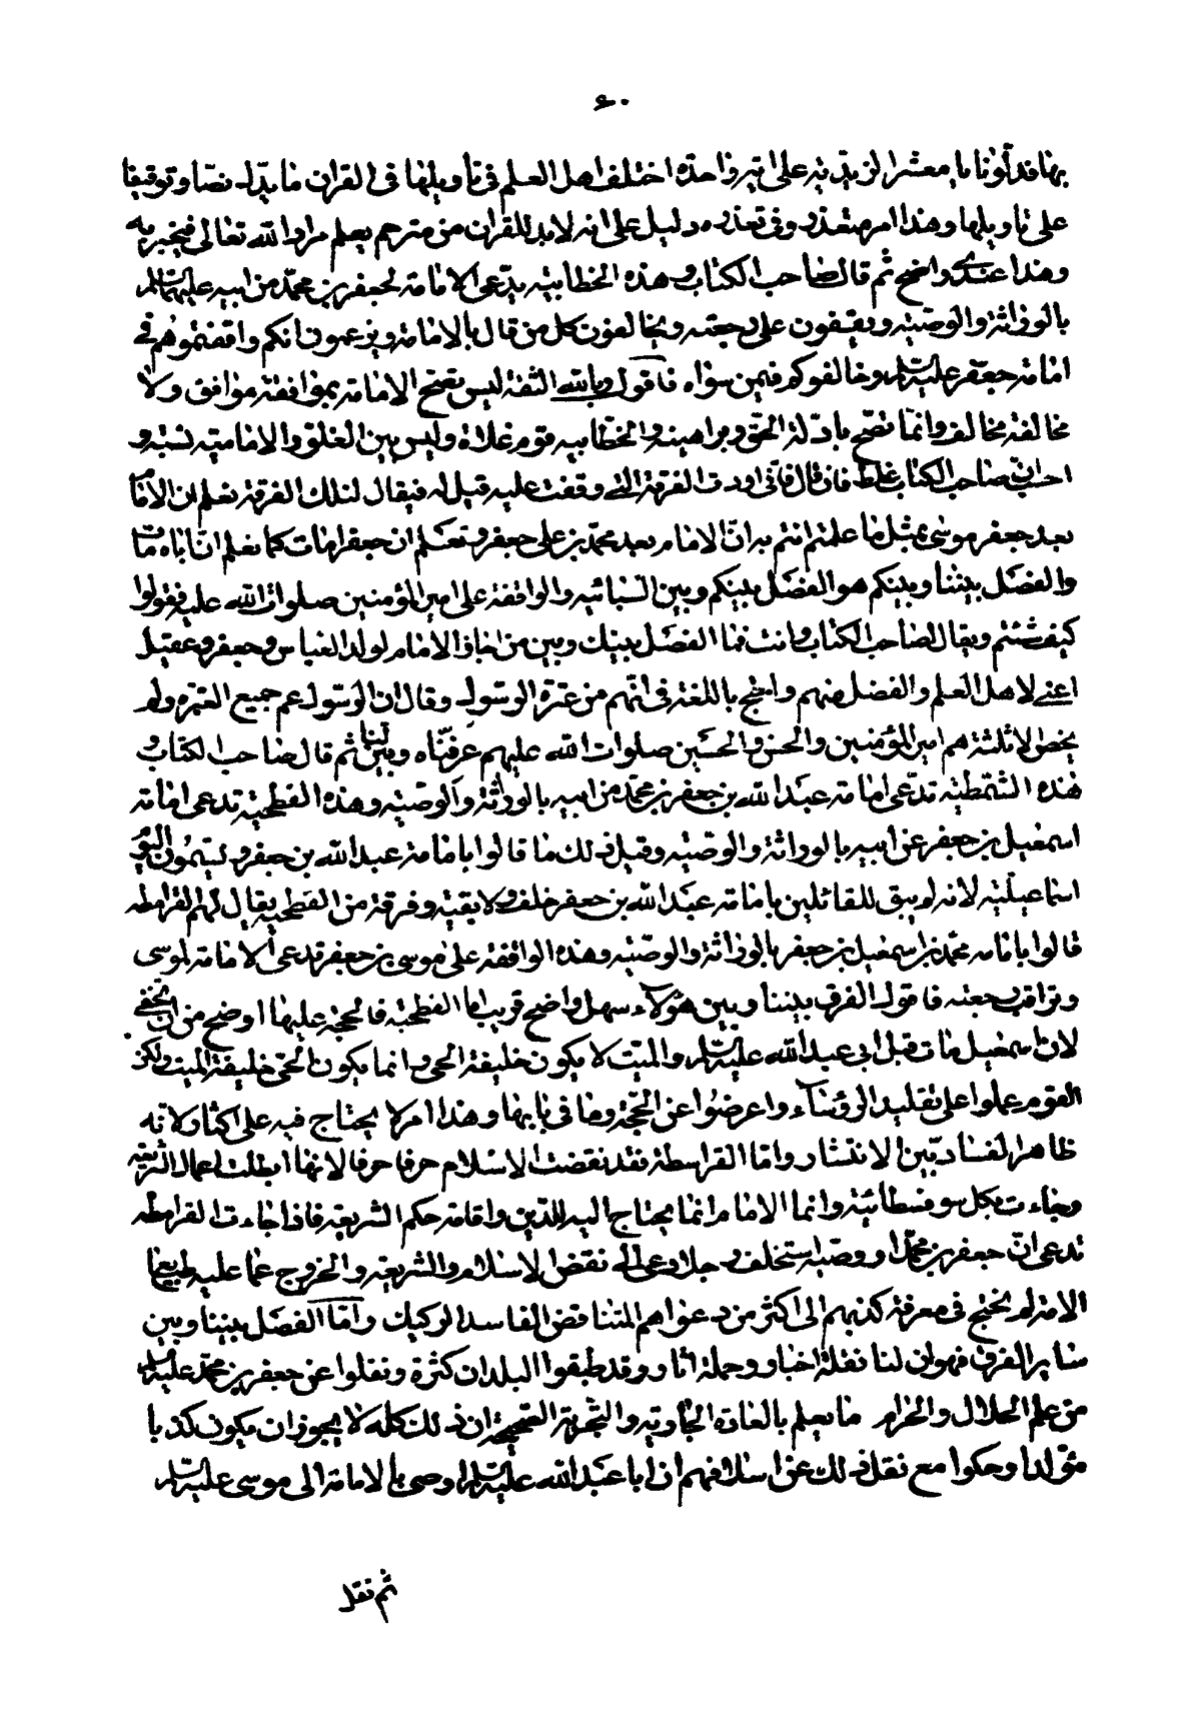 ٦٠
بها فدلونا يا معشر الزيدية على اية واحدة اختلف اهل العلم في تاويلها في القران ما يدل نصا وتوقيفا
على تاويلها وهذا امر متعذر وفي تعذره دليل على انه لابد للقران من مترجم يعلم مراد الله تعالى فيخبر به
وهذا عندي واضح ثم قال صاحب الكتاب وهذه الخطابية يدعى الامامة لجعفر بن محمد من ابيه عليهما السلام
بالوراثة والوصية ويقفون على رجعته ويخالفون كل من قال بالامامة ويزعمون انكم وافقتموهم في
امامة جعفر عليه السلام وخالفوكم فيمن سواه فاقول وبالله الثقة ليس تصح الامامة بموافقة موافق ولا
مخالفة مخالف وانما تصح بادلة الحق وبراهينه والخطابيه قوم غلاة وليس بين الغلو والامامية نسبة و
احسب صاحب الكتاب غلط فان قال فاني اردت الفرقة التي وقفت عليه قيل له فيقال لتلك الفرقة نعلم ان الامام
بعد جعفر موسى بمثل ما علمتم انتم به ان الامام بعد محمد بن علي جعفر ونعلم ان جعفرا مات كما نعلم ان اباه مات
والفصل بيننا وبينكم هو الفصل بينكم وبين السبائيه والواقفة على امير المؤمنين صلوات الله عليه فقولوا
كيف شئتم ويقال لصاحب الكتاب وانت فما الفصل بينك وبين من اختار الامام لولد العباس وجعفر وعقيل
اعنى لاهل العلم والفضل منهم واحتج باللغة في انهم من عترة الرسول وقال ان الرسول عم جميع العترة ولم
يخص الا ثلثة هم امير المؤمنين والحسن والحسين صلوات الله عليهم عرفناه وبين لنا ثم قال صاحب الكتاب و
هذه الشمطية تدعى امامة عبد الله بن جعفر بن محمد من ابيه بالوراثة والوصية وهذه الفطحية تدعى امامة
اسمعيل بن جعفر عن ابيه بالوراثة والوصية وقبل ذلك ما قالوا بامامة عبد الله بن جعفر ويسمون اليوم
اسماعيلية لانه لم يبق للقائلين بامامة عبد الله بن جعفر خلف ولا بقية وفرقة من الفطحية يقال لهم القرامطه
قالوا بامامة محمد بن اسمعيل بن جعفر بالوراثة والوصية وهذه الواقفة على موسى بن جعفر تدعى الامامة لموسى
وتراقب رجعته فاقول الفرق بيننا وبين هؤلاء سهل واضح قريب اما الفطحية فالحجة عليها اوضح من ان تخفى
لان اسمعيل مات قبل ابي عبد الله عليه السلام والميت لا يكون خليفة الحي وانما يكون الحى خليفة الميت ولكن
القوم عملوا على تقليد الرؤساء واعرضوا عن الحجة وما في بابها وهذا امر لا يحتاج فيه على اكثار لانه
ظاهر الفساد بين الانتشار واما القرامطة فقد نقضت الاسلام حرفا حرفا لانها ابطلت اعمال الشريعة
وجاءت بكل سوفسطائية وانما الامام انما يحتاج اليه للدين واقامة حكم الشريعة فاذا جاءت القرامطه
تدعى ان جعفر بن محمد او وصيه استخلف رجلا دعى الى نقض الاسلام والشريعة والخروج عما عليه طبايع
الامة لم يحتج في معرفة كذبهم الى اكثر من دعواهم المتناقض الفاسد الركيك واما الفصل بيننا وبين
سائر الفرق فهو ان لنا نقلة اخبار وحملة اثار وقد طبقوا البلدان كثرة ونقلوا عن جعفر بن محمد عليه السلام
من علم الحلال والحرام ما يعلم بالعادة الجارية والتجربة الصحيحة ان ذلك كله لا يجوز ان يكون كذبا
مولدا وحكوا مع نقل ذلك عن اسلافهم ان ابا عبد الله عليه السلام اوصى بالامامة الى موسى عليه السلام
ثم نقل